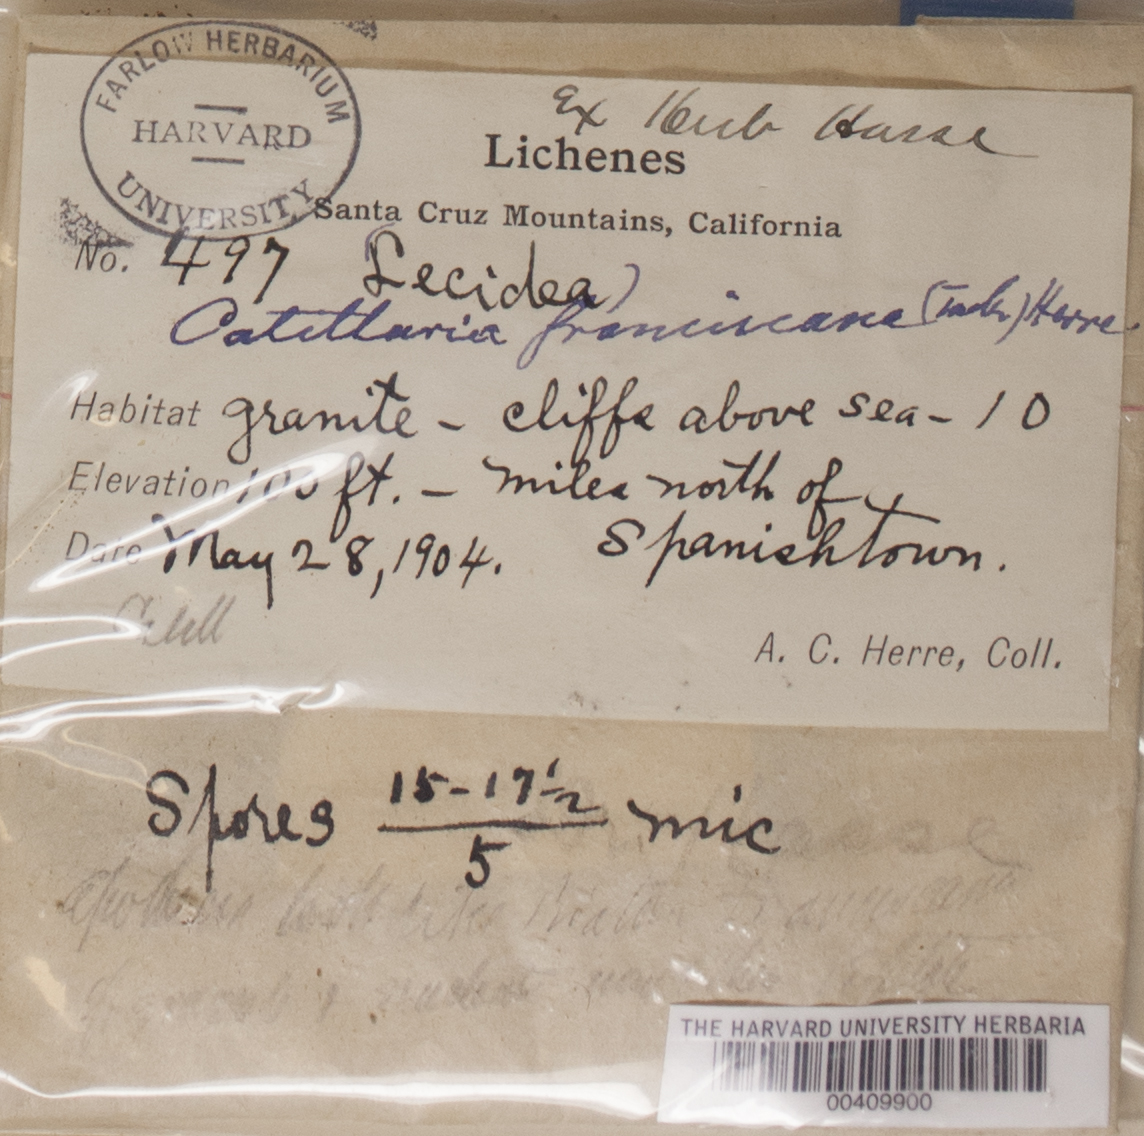 FARLOW HERBARIUM
HARVARD
UNIVERSITY
Ex Herb Hasse
Lichenes
Santa Cruz Mountains, California
No. 497 (Lecidea)
Catillaria franciscana (Tuck.) Herre
Habitat granite - cliffs above sea - 10
Elevation 100 ft. - miles north of
Date May 28, 1904. Spanishtown.
A. C. Herre, Coll.
Spores 15-17½ mic
5
THE HARVARD UNIVERSITY HERBARIA
00409900